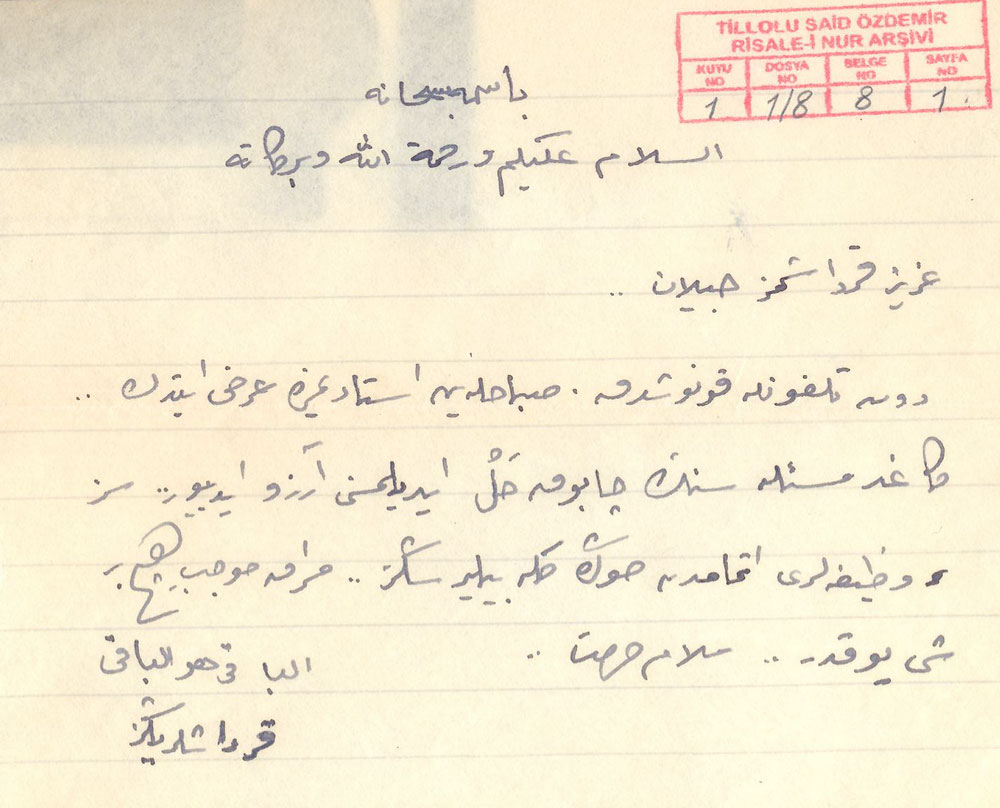 TİLLOLU SAİD ÖZDEMİR
RİSALE-İ NUR ARŞİVİ
KUTU NO DOSYA NO BELGE NO SAYFA NO
1 1/8 8 1
باسمه سبحانه
السلام عليكم ورحمة الله وبركاته
عزيز قرداشمز جيلان ..
دون تلفونله قونوشدق . صباحلەین استاديمزه عرض ايتدك ..
كاغد مسئله سنڭ چابوق حَلّ ايديلمسنى آرزو ايدييور .. سز
وظيفه لرى اتمامدن صوڭره كله بيليرسڭز .. مراق موجب هيچ بر
شى يوقدر .. سلام حرمت ..
الباقى هو الباقى
قرداشلريڭز